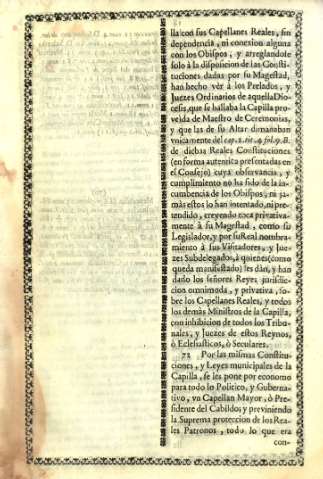 lla con sus Capellanes Reales, sin
dependencia, ni conexion alguna
con los Obispos, y arreglandose
solo à la disposicion de las Consti-
tuciones dadas por su Magestad,
han hecho vèr à los Prelados, y
Juezes Ordinarios de aquella Dio-
cesis, que se hallaba la Capilla pro-
veìda de Maestro de Ceremonias,
y que las de su Altar dimanaban
vnicamente del cap. 2. tit. 4. fol. 9. B.
de dichas Reales Constituciones
(en forma autentica presentadas en
el Consejo) cuya observancia, y
cumplimiento no ha sido de la in-
cumbencia de los Obispos, ni ja-
màs estos lo han intentado, ni pre-
tendido, creyendo toca privativa-
mente à su Magestad, como su
Legislador, y por su Real nombra-
miento à sus Visitadores, y Jue-
zes Subdelegados, à quienes (como
queda manifestado) les dàn, y han
dado los señores Reyes jurisdic-
cion omnimoda, y privativa, so-
bre los Capellanes Reales, y todos
los demàs Ministros de la Capilla,
con inhibicion de todos los Tribu-
nales, y Juezes de estos Reynos,
ò Eclesiasticos, ò Seculares.
72 Por las mismas Constitu-
ciones, y Leyes municipales de la
Capilla, se les pone por economo
para todo lo Politico, y Guberna-
tivo, vn Capellan Mayor, ò Pre-
sidente del Cabildo; y previniendo
la Suprema proteccion de los Rea-
les Patronos, todo lo que era
con-